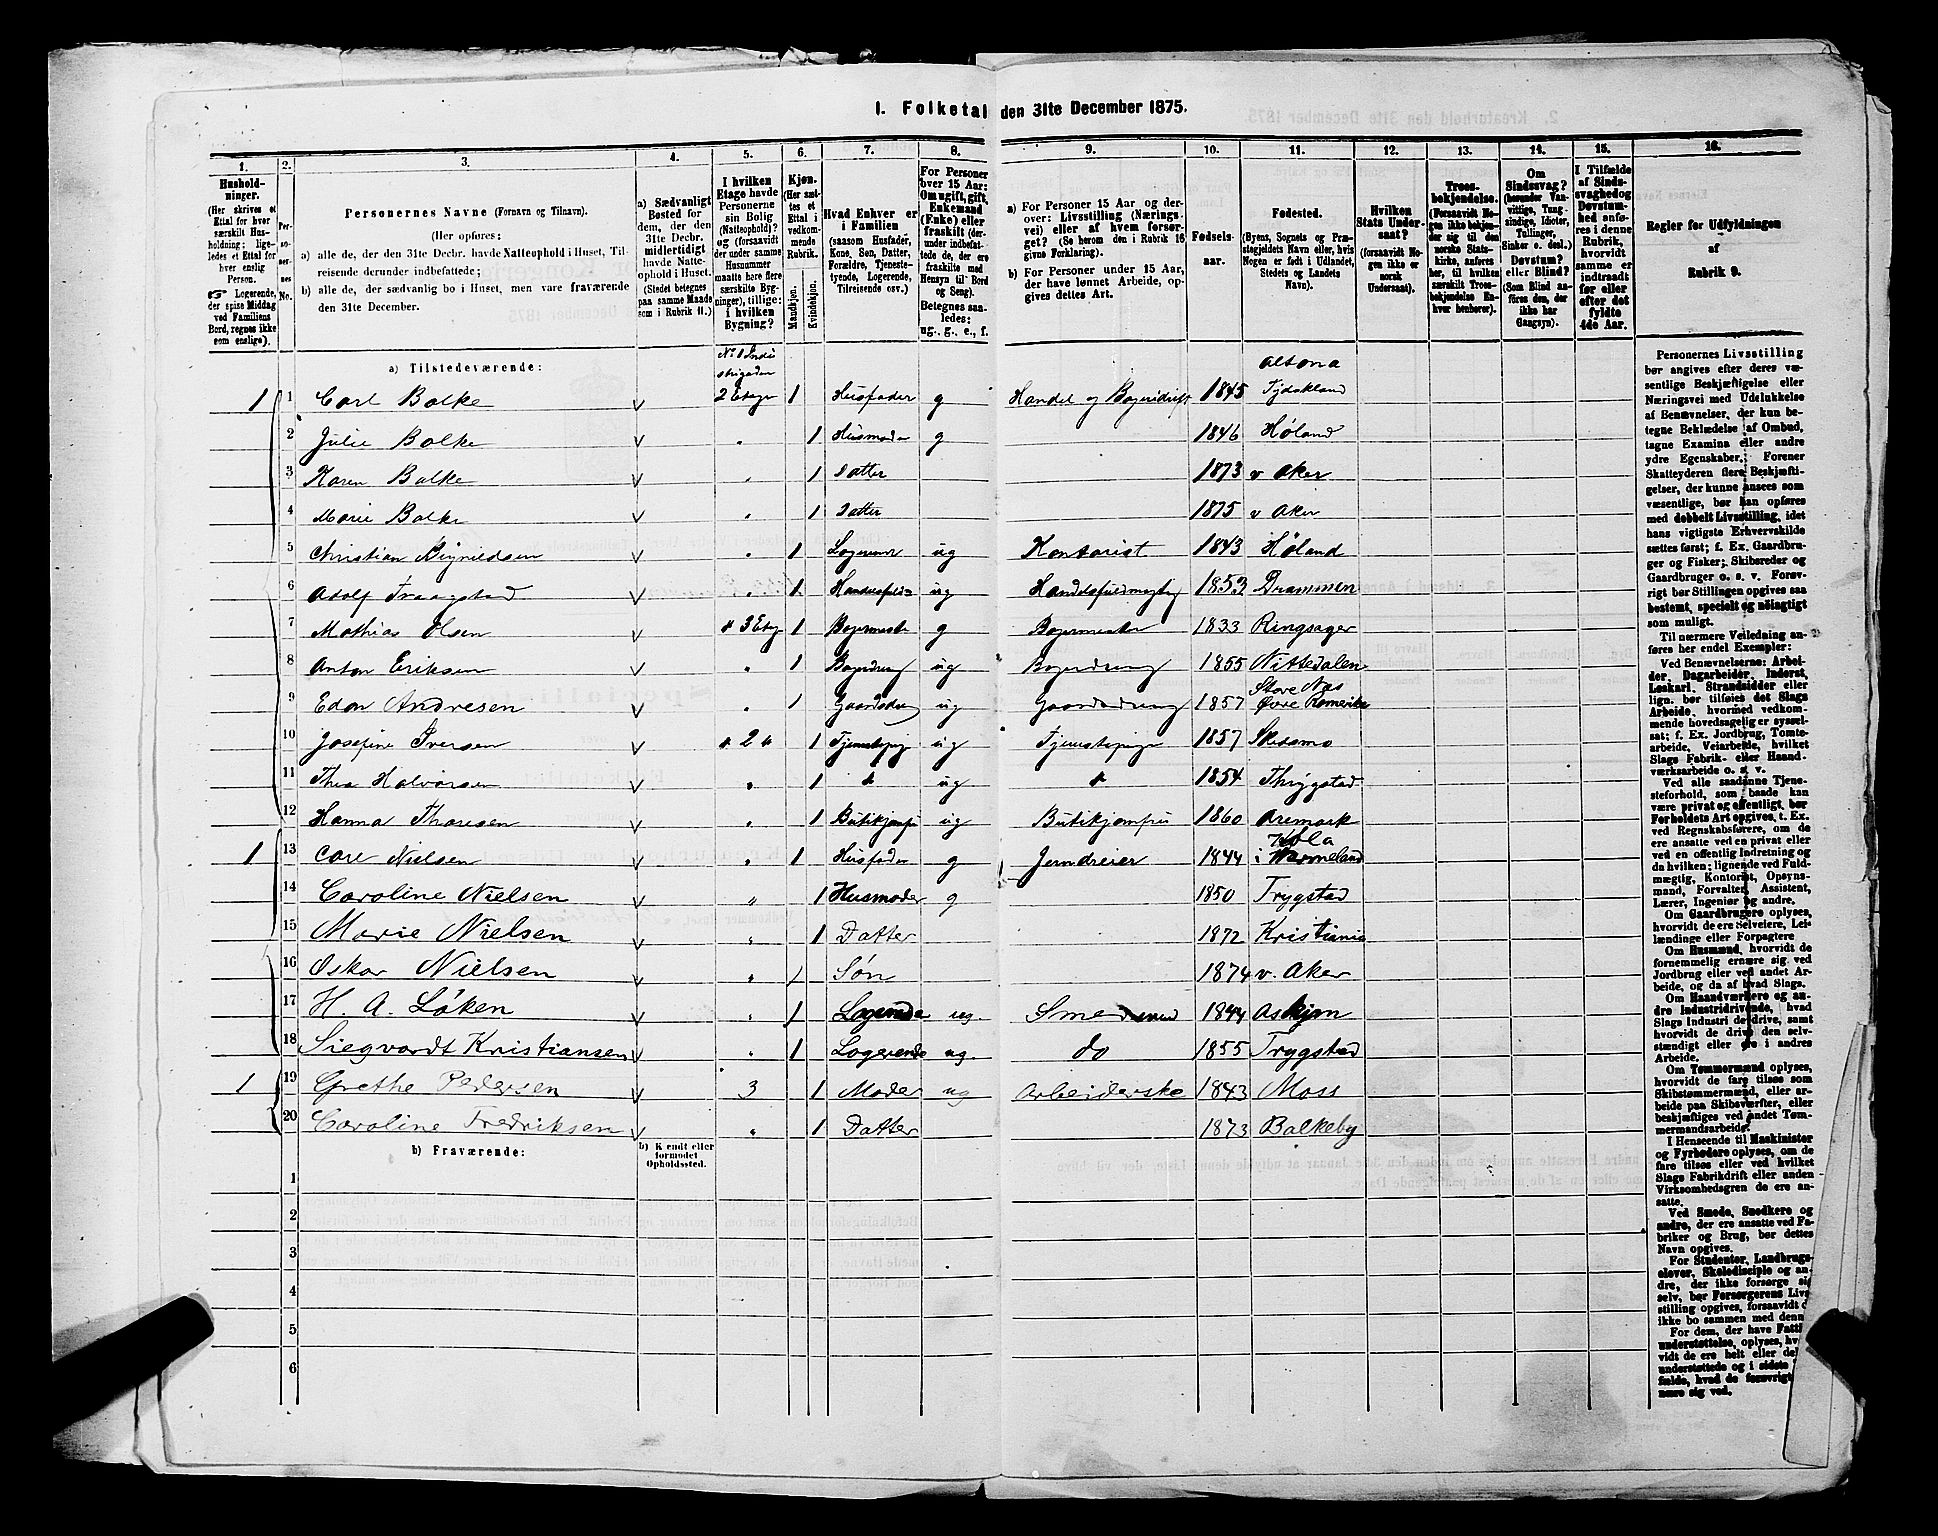 I. Folketal den 31te December 1875.
1. 2. 3. 4. 5. 6. 7. 8. 9. 10. 11. 12. 13. 14. 15. 16.
Husholdninger.
(Her skrives et Ettal for hver særskilt Husholdning; ligeledes et Ettal for hver enslig Person.
Logerende, der spise Middag ved Familiens Bord, regnes ikke som enslige).
Personernes No.
Personernes Navne (Fornavn og Tilnavn).
(Her opføres:
a) alle de, der den 31te Decbr. havde Natteophold i Huset, Tilreisende derunder indbefattede;
b) alle de, der sædvanlig bo i Huset, men vare fraværende den 31te December.
a) Sædvanligt Bosted for dem, der den 31te Decbr. midlertidigt havde Natteophold i Huset. (Stedet betegnes paa samme Maade som i Rubrik 11.)
I hvilken Etage havde Personerne sin Bolig (Natteophold)? og (forsaavidt der under samme Husnummer maatte høre flere særskilte Bygninger), tillige: i hvilken Bygning?
Kjøn. (Her sættes et Ettal i vedkommende Rubrik.
Mandkjøn. Kvindekjøn.
Hvad Enhver er i Familien
(saasom Husfader, Kone, Søn, Datter, Forældre, Tjenestetyende, Logerende, Tilreisende osv.)
For Personer over 15 Aar: Om ugift, gift, Enkemand (Enke) eller fraskilt (derunder indbefattede, de ere fraskilte med Hensyn til Bord og Seng). Betegnes saaledes: ug., g., e., f.
a) For Personer 15 Aar og derover: Livsstilling (Næringsvei) eller af hvem forsørget? (Se herom den i Rubrik 16 givne Forklaring).
b) For Personer under 15 Aar, der have lønnet Arbeide, opgives dettes Art.
Fødselsaar.
Fødested.
(Byens, Sognets og Præstegjeldets Navn eller, hvis Nogen er født i Udlandet, Stedets og Landets Navn).
Hvilken Stats Undersaat?
(forsaavidt Nogen ikke er norsk Undersaat).
Troesbekjendelse.
(Forsaavidt Nogen ikke bekjender sig til den norske Statskirke, anføres her, til hvilken særskilt Troesbekjendelse Enhver henhører).
Om Sindssvag? (herunder Vanvittige, Tungsindige, Idioter, Tullinger, Sinker o. desl.) Døvstum? eller Blind? (Som Blind anføres den, der ikke har Gangsyn).
I Tilfælde af Sindssvaghed og Døvstumhed anføres i denne Rubrik, hvorvidt samme er indtraadt før eller efter det fyldte 4de Aar.
Regler for Udfyldningen af Rubrik 9.
a) Tilstedeværende:
1 1 Carl Balke v 2 Etage 1 Husfader g Handel og Bageridrift 1845 Altona Tydskland
2 Julie Balke v " 1 Husmoder g 1846 Høland
3 Karen Balke v " 1 Datter 1873 v Aker
4 Marie Balke v " 1 Datter 1875 v Aker
5 Christian v " 1 Logerende ug Kontorist 1843 Høland
6 Adolf v " 1 ug 1853 Drammen
7 Mathias Olsen v " 3 Etag 1 g Bagermester 1833 Ringsager
8 Anton Eriksen v " 1 ug Bagerdreng 1855 Nittedalen
9 Edon Andresen v " 1 ug Gaardsdreng 1857 Store Næs Øvre Romerike
10 Josefine Iversen v " 2 " 1 Tjenestepige ug Tjenestepige 1857 Skedsmo
11 Thea Halvorsen v " 1 " ug " 1854 Thrygstad
12 Hanna Thoresen v " 1 Butikjomfru ug Butikjomfru 1860 Aremark
1 13 Carl Nielsen v " 1 Husfader g Jerndreier 1844 i Wermeland
14 Caroline Nielsen v " 1 Husmoder g 1850 Trygstad
15 Marie Nielsen v " 1 Datter 1872 Kristiania
16 Oskar Nielsen v " 1 Søn 1874 v. Aker
17 H. A. Løken v " 1 Logerende ug. 1844 Askim
18 Siegvardt Kristiansen v " 1 Logerende ug. do 1855 Trygstad
1 19 Grethe Pedersen v 3 1 Moder ug Arbeiderske 1843 Moss
20 Caroline Fredriksen v " 1 Datter 1873 Balkeby
b) Fraværende:
b) Kjendt eller formodet Opholdssted.
1
2
3
4
5
6
Personernes Livsstilling bør angives efter deres væsentlige Beskjæftigelse eller Næringsvei med Udelukkelse af Benævnelser, der kun betegne Beklædelse af Ombud, tagne Examina eller andre ydre Egenskaber. Forener Skatteyderen flere Beskjæftigelser, der kunne ansees som væsentlige, bør han opføres med dobbelt Livsstilling, idet hans vigtigste Erhvervskilde sættes først; f. Ex. Gaardbruger og Fisker; Skibsreder og Gaardbruger o. s. v. Forøvrigt bør Stillingen opgives saa bestemt, specielt og nøiagtigt som muligt.
Til nærmere Veiledning anføres her endel Exempler:
Ved Benævnelserne: Arbeider, Dagarbeider, Inderst, Løskarl, Strandsidder eller lign. bør tilføies det Slags Arbeide, hvormed vedkommende hovedsagelig er sysselsat; f. Ex. Jordbrug, Tomtearbeide, Veiarbeide, hvilket Slags Fabrik- eller Haandværksarbeide o. s. v.
Ved alle saadanne Tjenesteforhold, som baade kan være privat og offentligt, bør Forholdets Art opgives, t. Ex. ved Regnskabsførere, om de ere ansatte ved en privat eller ved en offentlig Indretning og da hvilken; lignende ved Fuldmægtig, Kontorist, Opsynsmand, Forvalter, Assistent, Lærer, Ingeniør og andre.
Om Gaardbrugere oplyses, hvorvidt de ere Selveiere, Leilændinge eller Forpagtere
Om Husmænd, hvorvidt de fornemmelig ernære sig ved Jordbrug eller ved andet Arbeide, og da af hvad Slags.
Om Haandværkere og andre Industridrivende, hvad Slags Industri de drive, samt hvorvidt de drive den selvstændigt eller ere i andres Arbeide.
Om Tømmermænd oplyses, hvorvidt de fare tilsøs som Skibstømmermænd, eller arbeide paa Skibsværfter, eller beskjæftiges ved andet Tømmermandsarbeide.
I Henseende til Maskinister og Fyrbødere oplyses, om de fare tilsøs eller ved hvilket Slags Fabrikdrift eller anden Virksomhedsgren de ere ansatte.
Ved Smede, Snedkere og andre, der ere ansatte ved Fabriker og Brug, bør dettes Navn opgives.
For Studenter, Landbrugselever, Skoledisciple og andre, der ikke forsørge sig selv, bør Forsørgerens Livsstilling opgives, forsaavidt de ikke bo sammen med denne
For dem, der have Fattigunderstøttelse, oplyses, hvorvidt de ere helt eller delvis understøttede og i sidste Fald, hvad de forøvrigt nære sig ved.